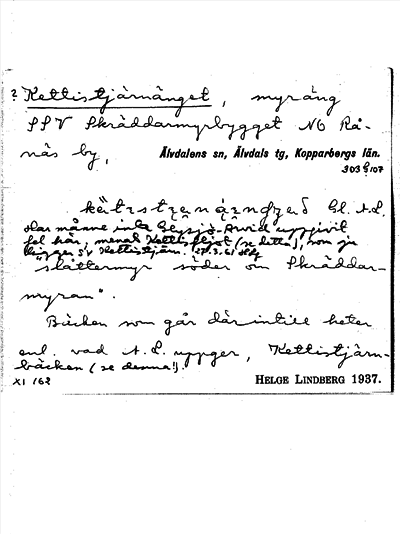 ? Kettistjärnänget, myräng
SSV Skräddarmyrbygget NO Rå-
näs by,
Älvdalens sn, Älvdals tg, Kopparbergs län.
303 § 107
Gl. A.L.
Har månne inte Gessjö-Arvid uppgivit
fel här, menat Kettisfljot (se detta), som ju
ligger SV Kettistjärn. 27.3.61
slåttermyr söder om Skräddar-
myran".
Bäcken som går därintill heter
enl. vad A.L. uppger, Kettistjärn-
bäcken (se denna!).
XI /62
HELGE LINDBERG 1937.